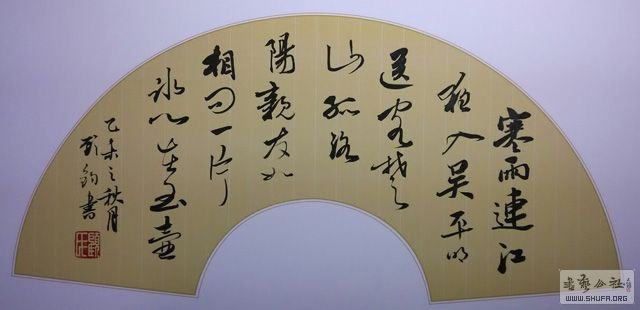 寒雨連江
夜入吳平明
送客楚
山孤洛
陽親友如
相問一片
冰心在玉壺
乙未之秋月
鈞書
書藝公社
WWW.SHUFA.ORG